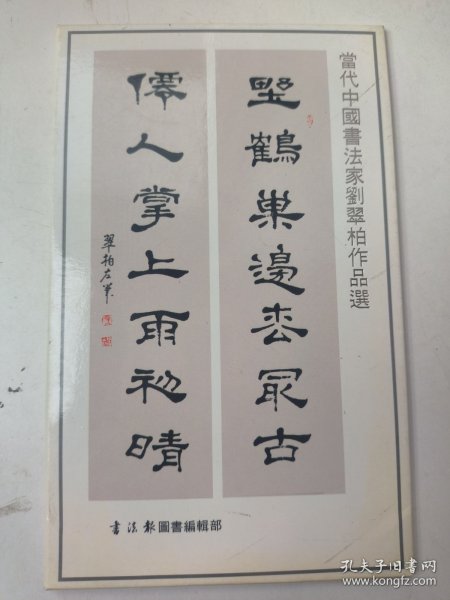 當代中國書法家劉翠柏作品選
野鶴巢邊松最古
僊人掌上雨初晴
翠柏左筆
書法報圖書編輯部
孔夫子旧书网
www.kongfz.com